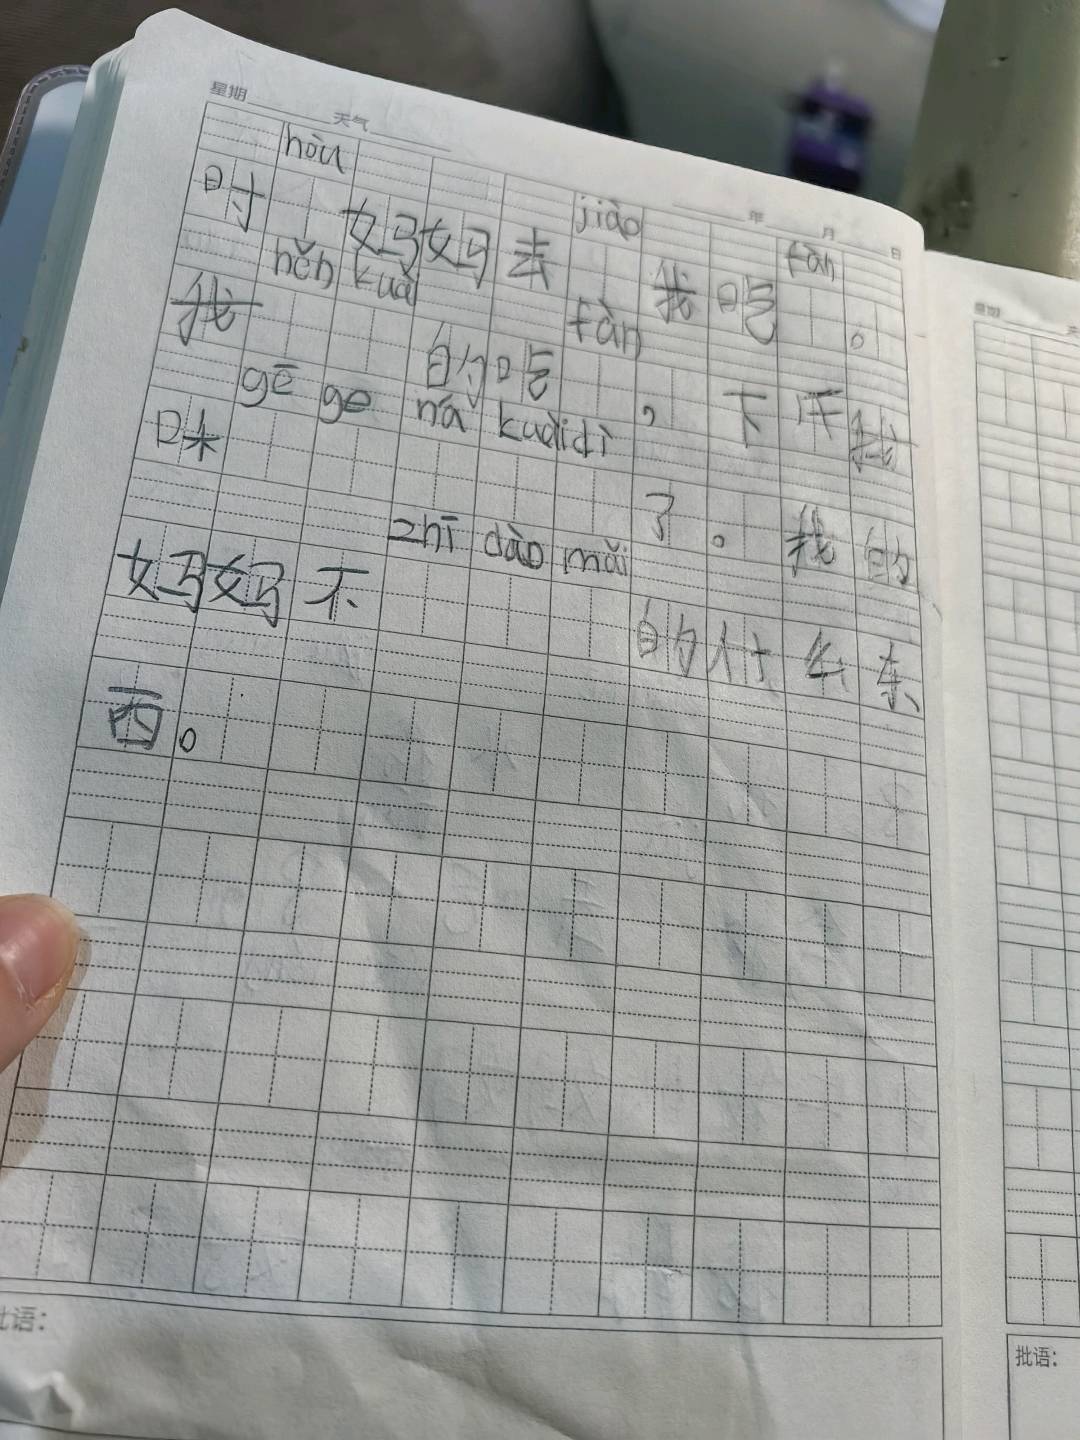 星期 天气 年 月 日
时hòu妈妈去jiào我吃fàn。
我hěn kuài的吃fàn，下来我
妹gē ge ná kuàidì了。我的
妈妈不zhī dào mǎi的什么东
西。
批语：
星期
批语：